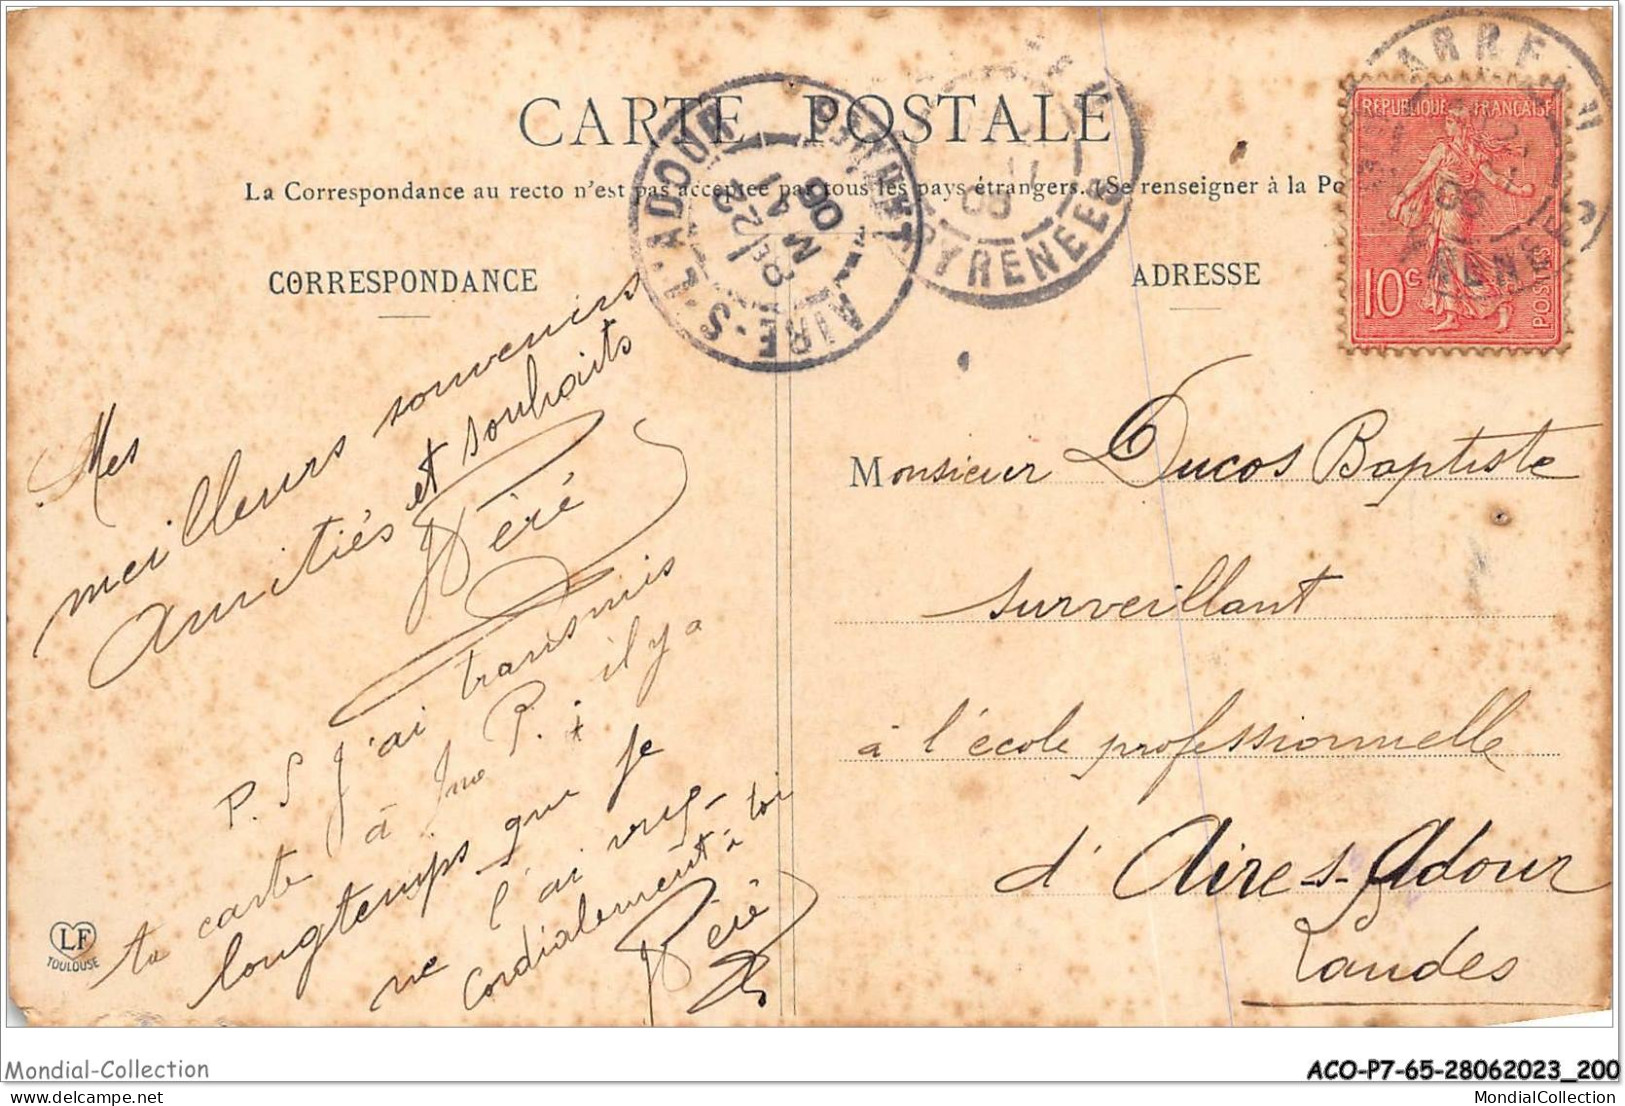 CARTE POSTALE
La Correspondance au recto n'est pas acceptée par tous les pays étrangers. (Se renseigner à la Po
CORRESPONDANCE
ADRESSE
REPUBLIQUE FRANÇAISE
10 c
POSTES
AIRE-S-L'ADOUR
PYRENEES
Mes
meilleurs souvenirs
Amitiés et souhaits
Péré
P.S J'ai transmis
ta carte à Mme P. il y a
longtemps que je
ne l'ai vue
Cordialement à toi
Péré
Monsieur Ducos Baptiste
surveillant
à l'école professionnelle
d' Aire-s-Adour
Landes
LF
TOULOUSE
Mondial-Collection
ACO-P7-65-28062023_200
MondialCollection